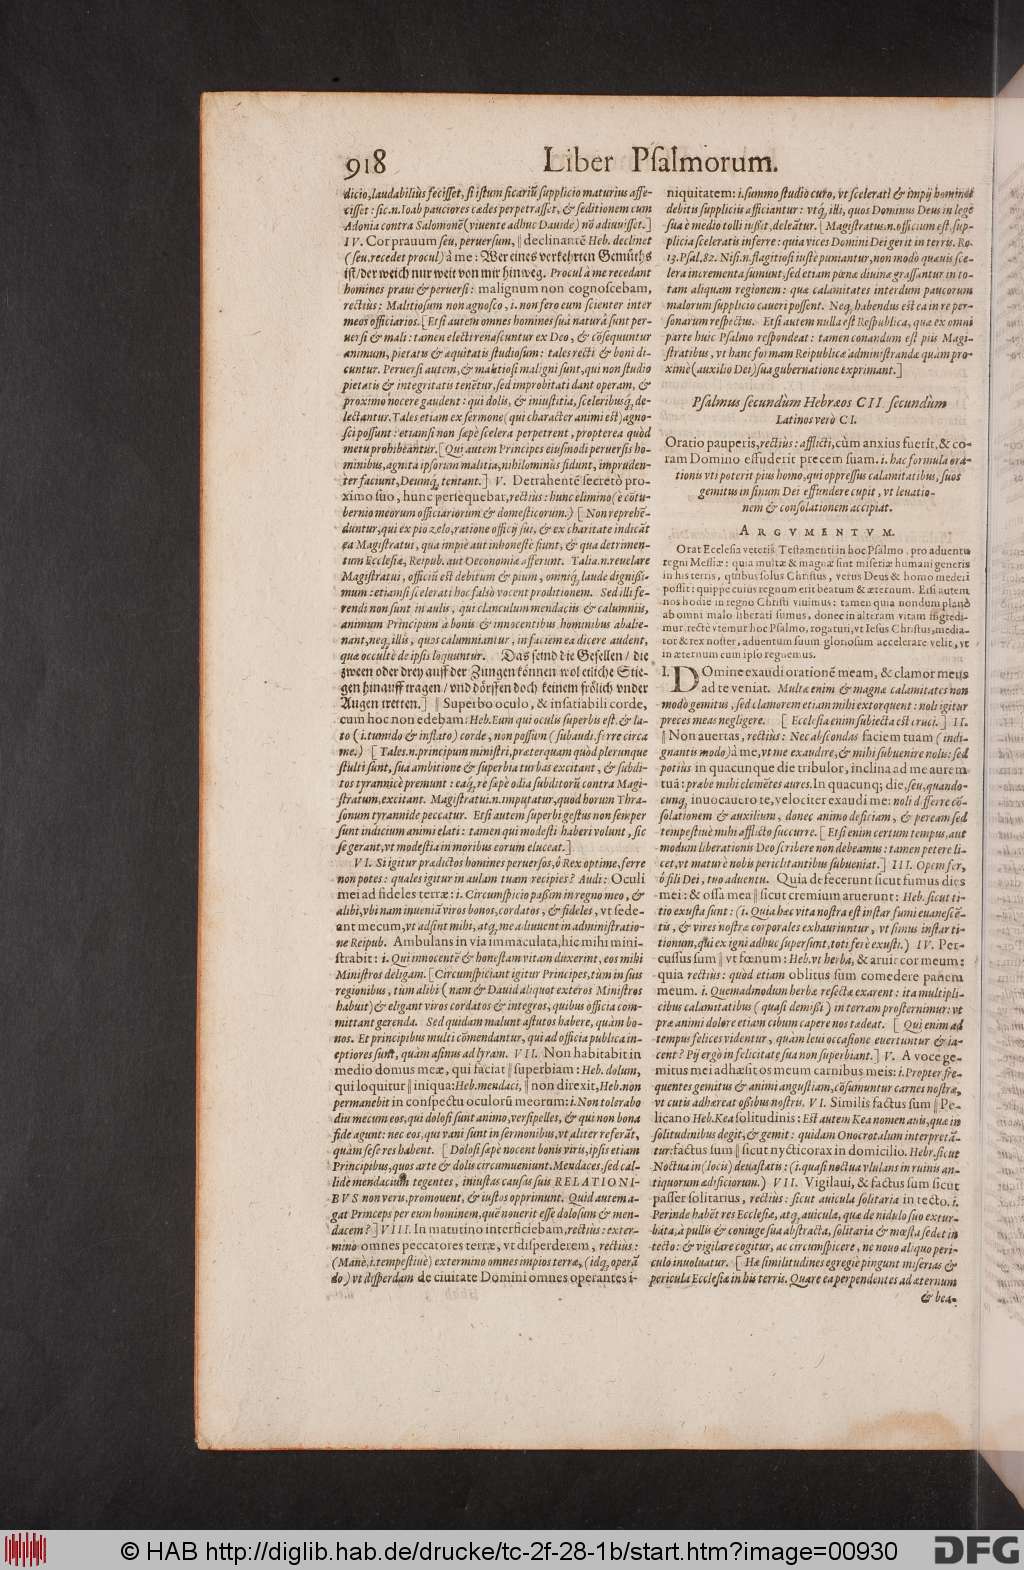 918 Liber Psalmorum.
dicio, laudabiliùs fecisset, si istum sicariũ supplicio maturius affe-
cisset: sic.n. Ioab pauciores cædes perpetrasset, & seditionem cum
Adonia contra Salomonẽ (vivente adhuc Davide) nõ adiuvisset.]
IV. Cor prauum seu, peruersum, ‖ declinantẽ Heb. declinet
(seu. recedet procul) à me: Wer eines verkehrten Gemüths
ist/der weich nur weit von mir hinweg. Procul à me recedant
homines praui & peruersi: malignum non cognoscebam,
rectiùs: Malitiosum non agnosco, i. non fero eum scienter inter
meos officiarios. [Etsi autem omnes homines suâ naturâ sunt per-
uersi & mali: tamen electi renascuntur ex Deo, & cõsequuntur
animum, pietatis & æquitatis studiosum: tales recti & boni di-
cuntur. Peruersi autem, & malitiosi maligni sunt, qui non studio
pietatis & integritatis tenẽtur, sed improbitati dant operam, &
proximo nocere gaudent: qui dolis, & iniustitia, sceleribusq́; de-
lectantur. Tales etiam ex sermone (qui character animi est) agno-
sci possunt: etiamsi non sæpè scelera perpetrent, propterea quòd
metu prohibeantur. [Qui autem Principes eiusmodi peruersis ho-
minibus, agnita ipsorum malitia, nihilominùs fidunt, impruden-
ter faciunt, Deumq́; tentant.] V. Detrahentẽ secretò pro-
ximo suo, hunc persequebar, rectius: hunc elimino (è cõtu-
bernio meorum officiariorum & domesticorum.) [Non reprehẽ-
duntur, qui ex pio zelo, ratione officij sui, & ex charitate indicãt
ea Magistratui, quæ impiè aut inhonestè fiunt, & quæ detrimen-
tum Ecclesiæ, Reipub. aut Oeconomiæ afferunt. Talia.n. reuelare
Magistratui, officiũ est debitum & pium, omniq́; laude dignißi-
mum: etiamsi scelerati hoc falsò vocent proditionem. Sed illi fe-
rendi non sunt in aulis, qui clanculum mendaciis & calumniis,
animum Principum à bonis & innocentibus hominibus abalie-
nant, neq́; illis, quos calumniantur, in faciem ea dicere audent,
quæ occultè de ipsis loquuntur. Das seind die Gesellen/ die
zween oder drey auff der Zungen können wol etliche Stie-
gen hinauff tragen/ vnd dörffen doch keinem frölich vnder
Augen tretten.] ‖ Superbo oculo, & insatiabili corde,
cum hoc non edebam: Heb. Eum qui oculis superbis est, & la-
to (i. tumido & inflato) corde, non possum (subaudi, ferre circa
me.) [Tales.n. principum ministri, præterquam quòd plerunque
stulti sunt, sua ambitione & superbia turbas excitant, & subdi-
tos tyrannicè premunt: eaq́; re sæpè odia subditorũ contra Magi-
stratum, excitant. Magistratui.n. imputatur, quod horum Thra-
sonum tyrannide peccatur. Etsi autem superbi gestus non semper
sunt indicium animi elati: tamen qui modesti haberi volunt, sic
se gerant, vt modestia in moribus eorum eluceat.]
VI. Si igitur prædictos homines peruersos, ô Rex optime, ferre
non potes: quales igitur in aulam tuam recipies? Audi: Oculi
mei ad fideles terræ: i. Circumspicio paßim in regno meo, &
alibi, vbi nam inueniã viros bonos, cordatos, & fideles, vt sede-
ant mecum, vt adsint mihi, atq́; me adiuuent in administratio-
ne Reipub. Ambulans in via immaculata, hic mihi mini-
strabit: i. Qui innocentẽ & honestam vitam duxerint, eos mihi
Ministros deligam. [Circumspiciant igitur Principes, tùm in suis
regionibus, tùm alibi (nam & David aliquot exteros Ministros
habuit) & eligant viros cordatos & integros, quibus officia com-
mittant gerenda. Sed quidam malunt astutos habere, quàm bo-
nos. Et principibus multi cõmendantur, qui ad officia publica in-
eptiores sunt, quàm asinus ad lyram. VII. Non habitabit in
medio domus meæ, qui faciat ‖ superbiam: Heb. dolum,
qui loquitur ‖ iniqua: Heb. mendaci, ‖ non direxit, Heb. non
permanebit in conspectu oculorũ meorum: i. Non tolerabo
diu mecum eos, qui dolosi sunt animo, versipelles, & qui non bona
fide agunt: nec eos, qui vani sunt in sermonibus, vt aliter referãt,
quàm sese res habent. [Dolosi sæpè nocent bonis viris, ipsis etiam
Principibus, quos arte & dolis circumueniunt. Mendaces, sed cal-
lidè mendacium tegentes, iniustas causas suis RELATIONI-
BVS non veris, promouent, & iustos opprimunt. Quid autem a-
gat Princeps per eum hominem, quẽ nouerit esse dolosum & men-
dacem?] VIII. In matutino interficiebam, rectius: exter-
mino omnes peccatores terræ, vt disperderem, rectius:
(Manè, i. tempestiuè) extermino omnes impios terræ, (idq́; operã
do) vt disperdam de ciuitate Domini omnes operantes i-
niquitatem: i. summo studio curo, vt scelerati & impij homines
debitis suppliciis afficiantur: vtq́; illi, quos Dominus Deus in lege
sua è medio tolli iussit, deleãtur. [Magistratus.n. officium est, sup-
plicia sceleratis inferre: quia vices Domini Dei gerit in terris. Ro.
13. Psal. 82. Nisi.n. flagitiosi iustè puniantur, non modò quæuis sce-
lera incrementa sumunt, sed etiam pœnæ divinæ grassantur in to-
tam aliquam regionem: quæ calamitates interdum paucorum
malorum supplicio caueri possent. Neq́; habendus est ea in re per-
sonarum respectus. Etsi autem nulla est Respublica, quæ ex omni
parte huic Psalmo respondeat: tamen conandum est piis Magi-
stratibus, vt hanc formam Reipublicæ administrandæ quàm pro-
ximè (auxilio Dei) sua gubernatione exprimant.]
Psalmus secundùm Hebræos CII. secundùm
Latinos verò CI.
Oratio pauperis, rectiùs: afflicti, cùm anxius fuerit, & co-
ram Domino effuderit precem suam. i. hac formula ora-
tionis vti poterit pius homo, qui oppressus calamitatibus, suos
gemitus in sinum Dei effundere cupit, vt levatio-
nem & consolationem accipiat.
ARGVMENTVM.
Orat Ecclesia veteris Testamenti in hoc Psalmo, pro aduentu
regni Messiæ: quia multæ & magnæ sint miseriæ humani generis
in his terris, quibus solus Christus, verus Deus & homo mederi
possit: quippe cuius regnum erit beatum & æternum. Etsi autem
nos hodie in regno Christi viuimus: tamen quia nondum planè
ab omni malo liberati sumus, donec in alteram vitam ingredi-
mur, rectè vtemur hoc Psalmo, rogaturi, vt Iesus Christus, media-
tor & rex noster, aduentum suum gloriosum accelerare velit, vt
in æternum cum ipso regnemus.
I. DOmine exaudi orationẽ meam, & clamor meus
ad te veniat. Multæ enim & magnæ calamitates non
modò gemitus, sed clamorem etiam mihi extorquent: noli igitur
preces meas negligere. [Ecclesia enim subiecta est cruci.] II.
‖ Non auertas, rectiùs: Nec abscondas faciem tuam (indi-
gnantis modo) à me, vt me exaudire, & mihi subuenire nolis: sed
potiùs in quacunque die tribulor, inclina ad me aurem
tuã: præbe mihi clemẽtes aures. In quacunq́; die, seu, quando-
cunq́; inuocauero te, velociter exaudi me: noli differre cõ-
solationem & auxilium, donec animo deficiam, & peream sed
tempestiuè mihi afflicto succurre. [Etsi enim certum tempus, aut
modum liberationis Deo scribere non debeamus: tamen petere li-
cet, vt maturè nobis periclitantibus subueniat.] III. Opem fer,
ô fili Dei, tuo aduentu. Quia defecerunt sicut fumus dies
mei: & ossa mea ‖ sicut cremium aruerunt: Heb. sicut ti-
tio exusta sunt: (i. Quia hæc vita nostra est instar fumi euanescẽ-
tis, & vires nostræ corporales exhauriuntur, vt simus instar ti-
tionum, qui ex igni adhuc supersunt, toti ferè exusti.) IV. Per-
cussus sum ‖ vt fœnum: Heb. vt herba, & aruit cor meum:
quia rectius: quòd etiam oblitus sum comedere panem
meum. i. Quemadmodum herbæ resectæ exarent: ita multipli-
cibus calamitatibus (quasi demissi) in terram prosternimur: vt
præ animi dolore etiam cibum capere nos tædeat. [Qui enim ad
tempus felices videntur, quàm leui occasione euertuntur & ia-
cent? Pij ergò in felicitate sua non superbiant.] V. A voce ge-
mitus mei adhæsit os meum carnibus meis: i. Propter fre-
quentes gemitus & animi angustiam, cõsumuntur carnes nostræ,
vt cutis adhæreat oßibus nostris. VI. Similis factus sum ‖ Pe-
licano Heb. Kea solitudinis: Est autem Kea nomen auis, quæ in
solitudinibus degit, & gemit: quidam Onocrotalum interpretã-
tur: factus sum ‖ sicut nycticorax in domicilio. Hebr. sicut
Noctua in (locis) deuastatis: (i. quasi noctua vlulans in ruinis an-
tiquorum ædificiorum.) VII. Vigilaui, & factus sum sicut
passer solitarius, rectius: sicut auicula solitaria in tecto. i.
Perinde habẽt res Ecclesiæ, atq́; auiculæ, quæ de nidulo suo extur-
bata, à pullis & coniuge sua abstracta, solitaria & mœsta sedet in
tecto: & vigilare cogitur, ac circumspicere, ne nouo aliquo peri-
culo inuoluatur. [Hæ similitudines egregiè pingunt miserias &
pericula Ecclesiæ in his terris. Quare ea perpendentes ad æternum
& bea-
© HAB http://diglib.hab.de/drucke/tc-2f-28-1b/start.htm?image=00930
DFG